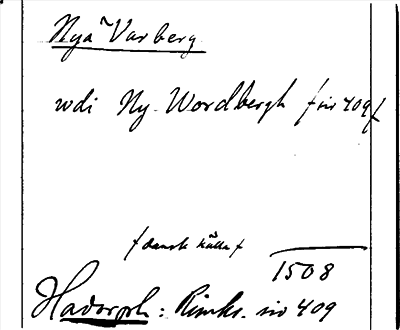 Nya Varberg
wdi Ny. Wordbergh
/dansk källa/
1508
Hadorph: Rimkr. sid 409